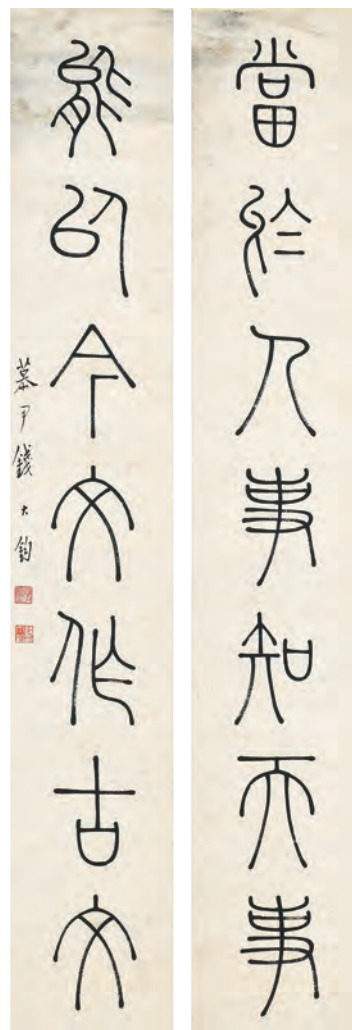 當於人事知天事
能以今文作古文
慕尹錢大鈞